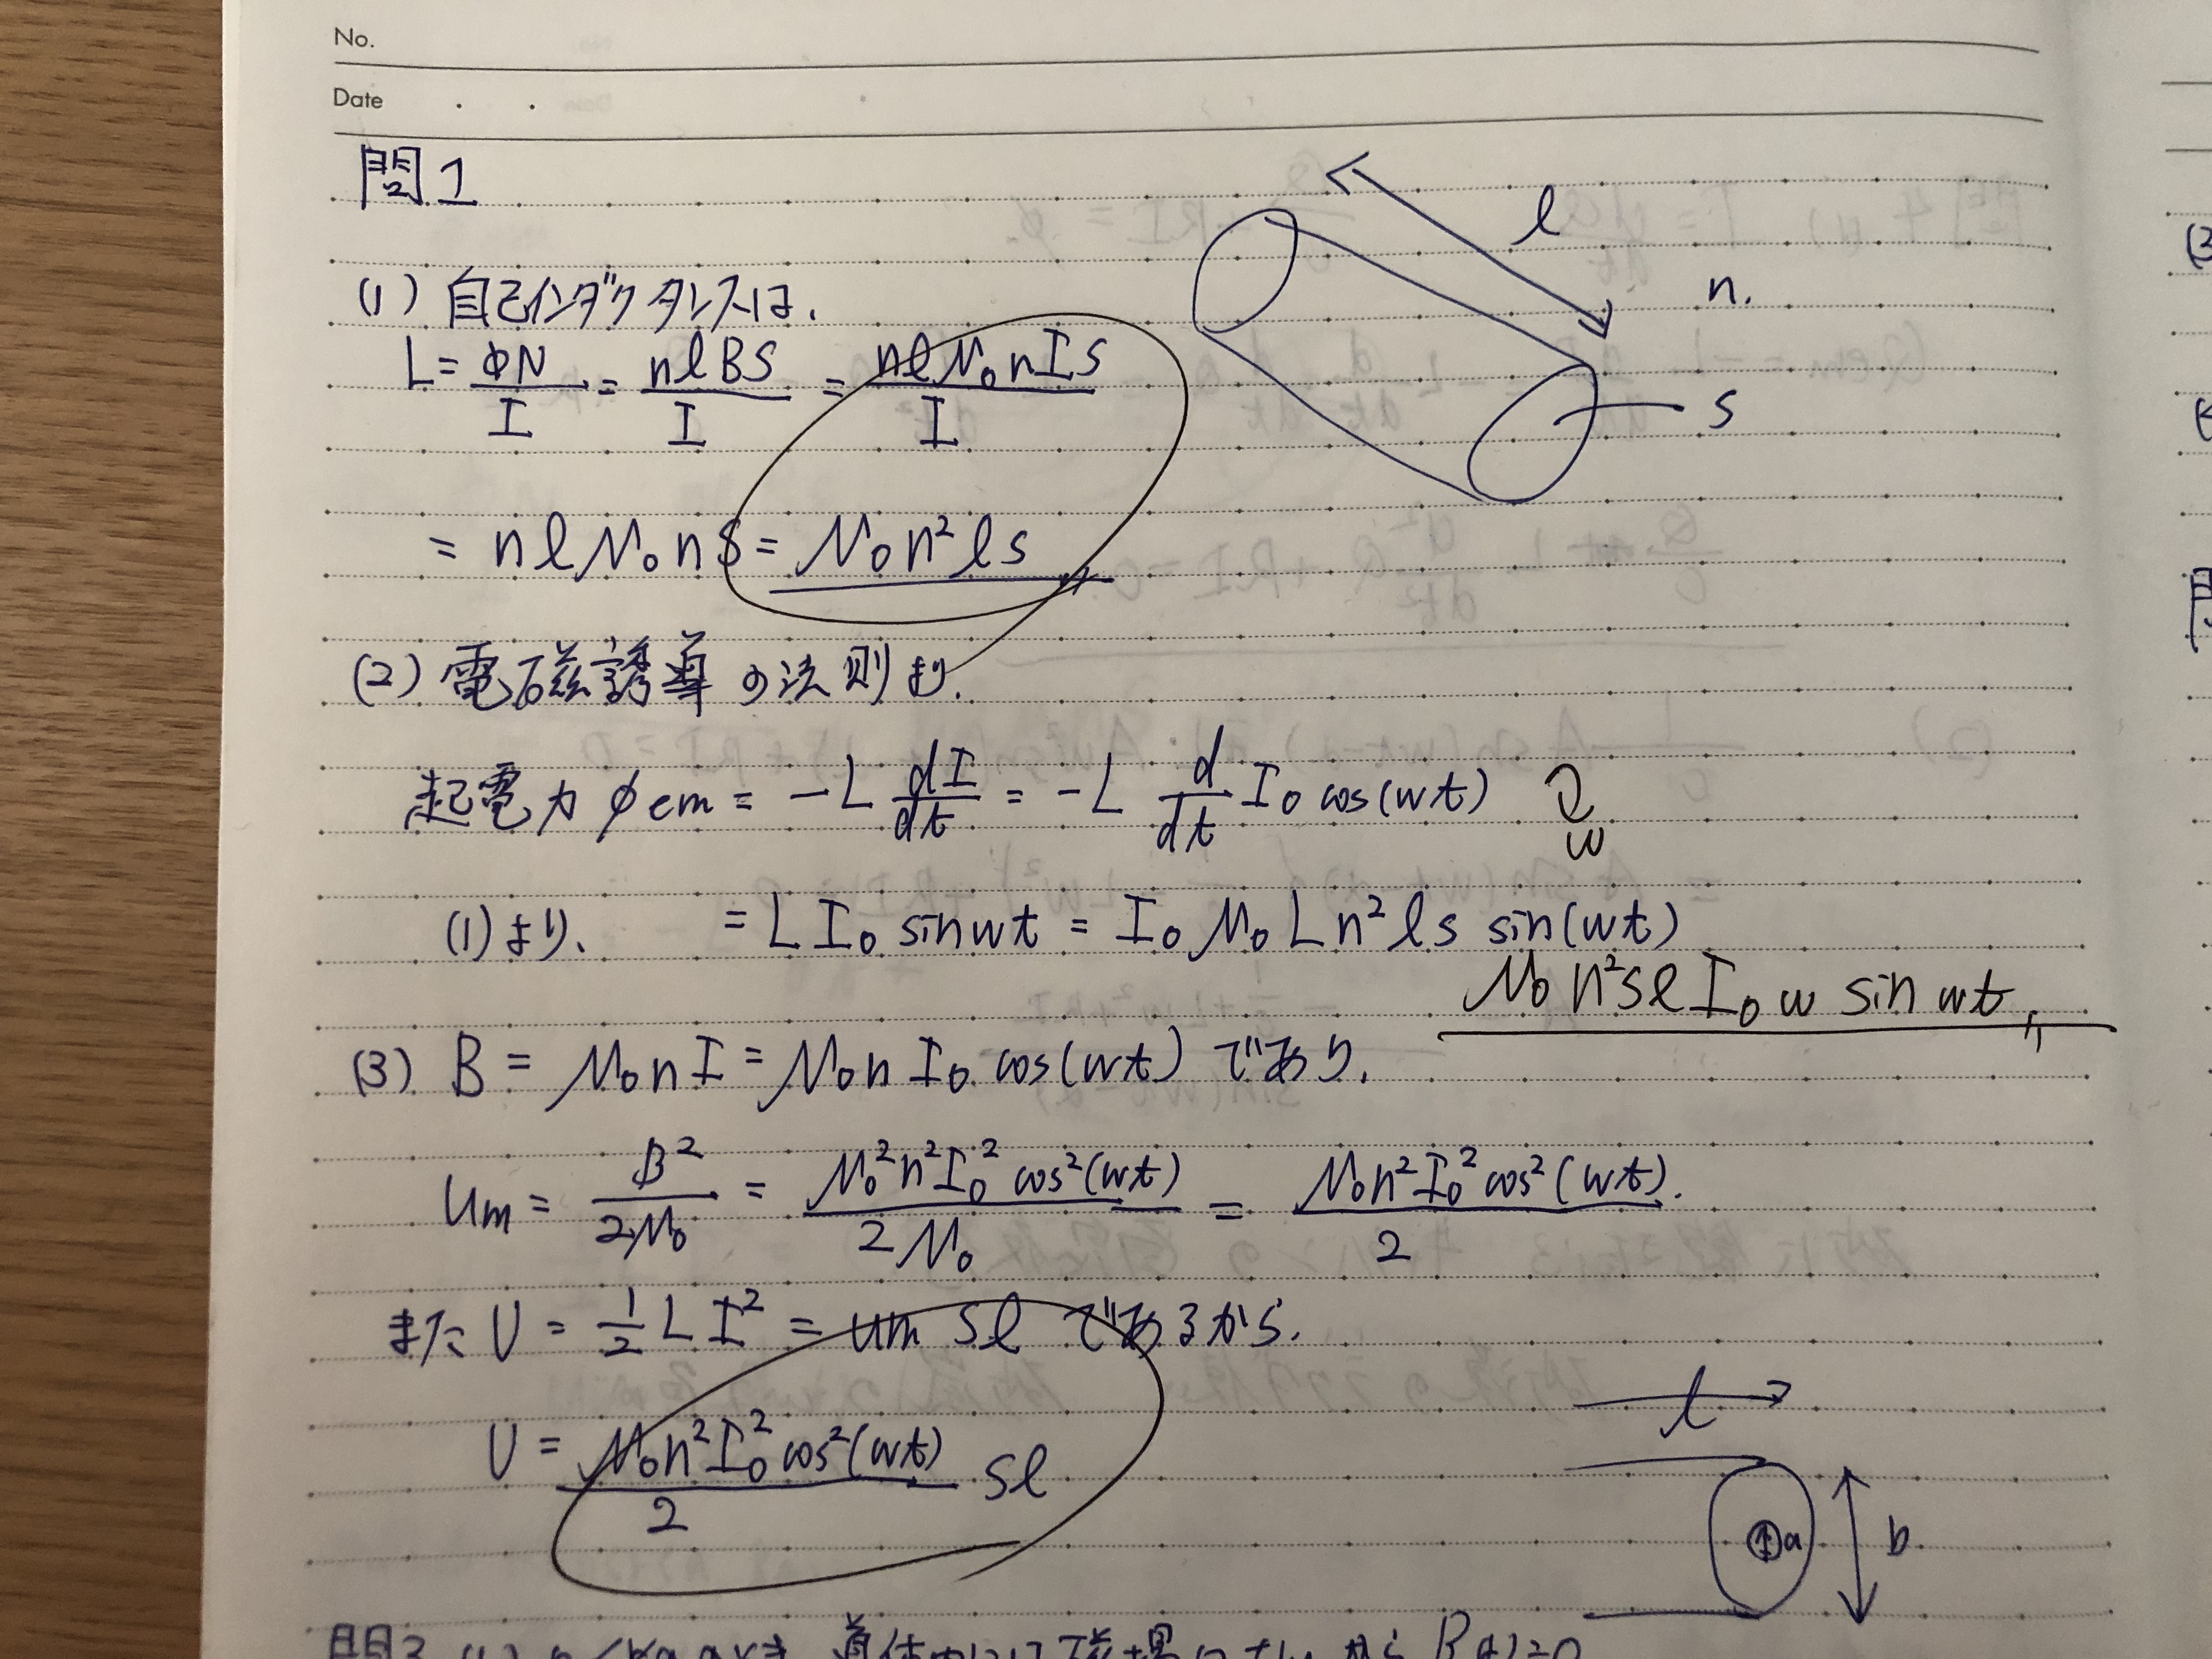 No.
Date
問1
l
n.
(1) 自己インダクタンスは、
S
L = ΦN/I = nlBS/I = nlμ₀nIS/I
= nlμ₀nS = μ₀n²ls
(2) 電磁誘導の法則より、
起電力 φem = -L dI/dt = -L d/dt I₀ cos(wt)
w
(1)より、 = LI₀ sinwt = I₀μ₀Ln²ls sin(wt)
μ₀n²slI₀w sin wt,,
(3) B = μ₀nI = μ₀nI₀ cos(wt) であり、
um = B²/2μ₀ = μ₀²n²I₀² cos²(wt)/2μ₀ = μ₀n²I₀² cos²(wt)/2.
また U = 1/2 LI² = um Sl であるから、
l
U = μ₀n²I₀² cos²(wt)/2 Sl
a b